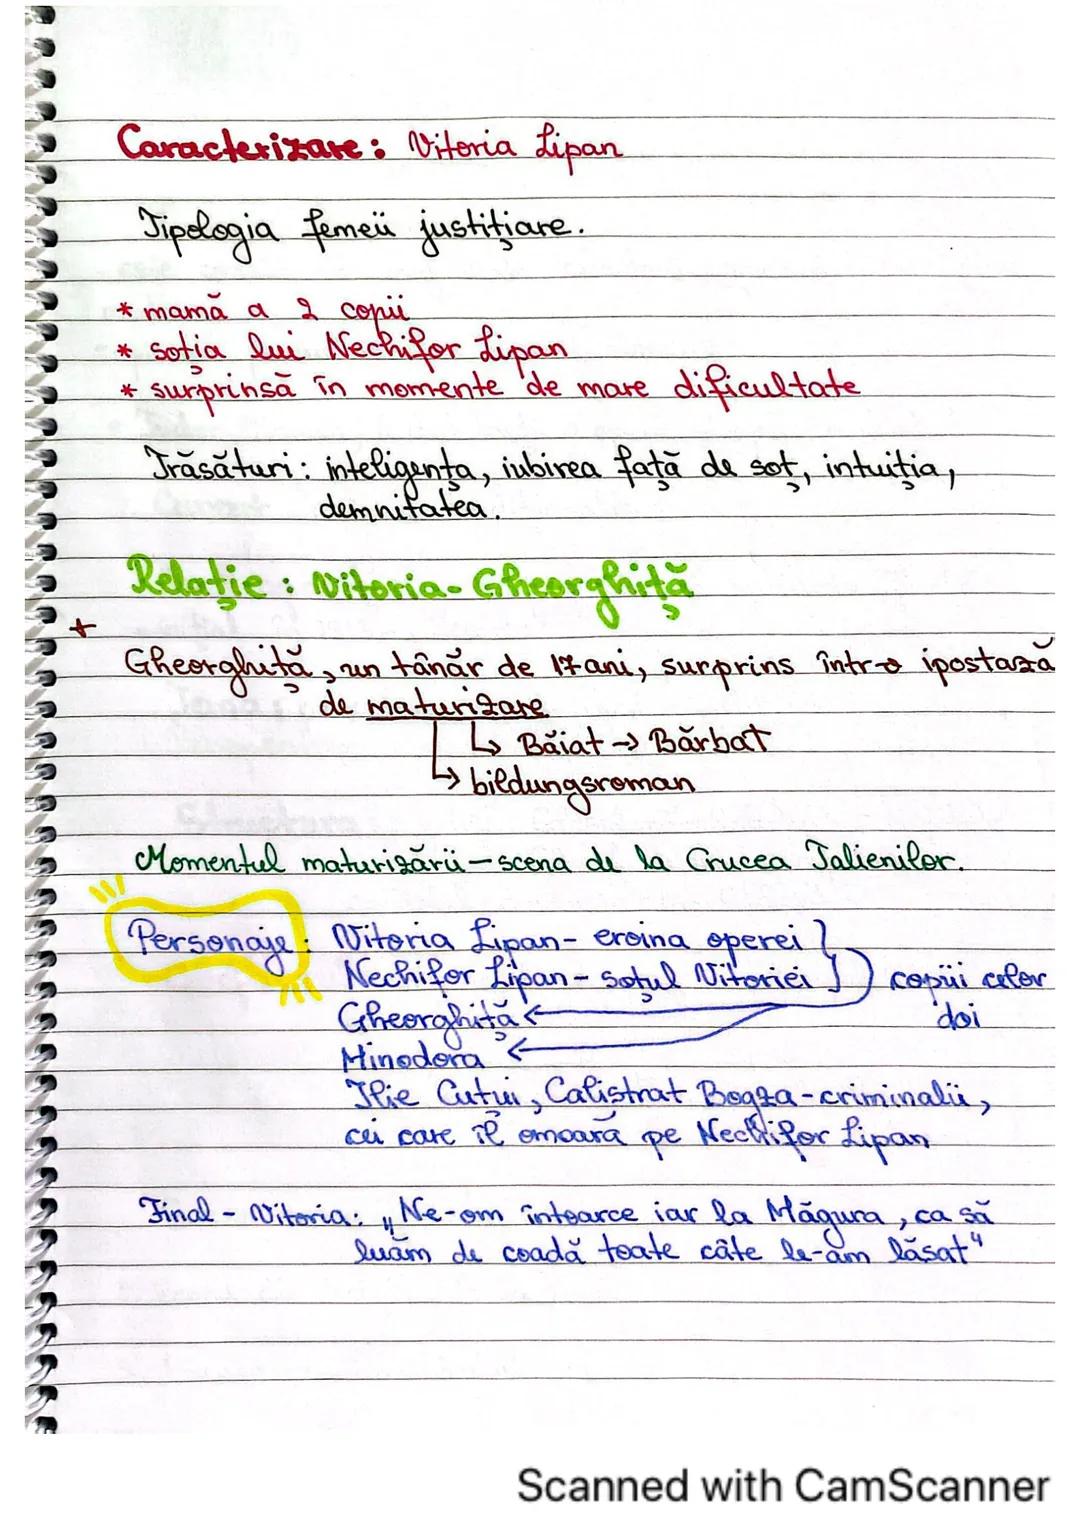 Caracterizare: Vitoria Lipan
Tipologia femeii justițiare.
* mamă a 2 copii
* soția lui Nechifor Lipan
* surprinsă în momente de mare dificultate
Trăsături: inteligența, iubirea față de soț, intuiția,
demnitatea.
Relație: Vitoria-Gheorghiță
*
Gheorghiță, un tânăr de 17 ani, surprins într-o ipostază
de maturizare
↳ Băiat → Bărbat
↳ bildungsroman
Momentul maturizării - scena de la Crucea Talienilor.
Personaje: Vitoria Lipan - eroina operei
Nechifor Lipan - soțul Vitoriei
copiii celor
Gheorghiță
doi
Minodora
Ilie Cuțui, Calistrat Bogza - criminalii,
cei care îl omoară pe Nechifor Lipan
Final - Vitoria: „Ne-om întoarce iar la Măgura, ca să
luăm de coadă toate câte le-am lăsat"
Scanned with CamScanner